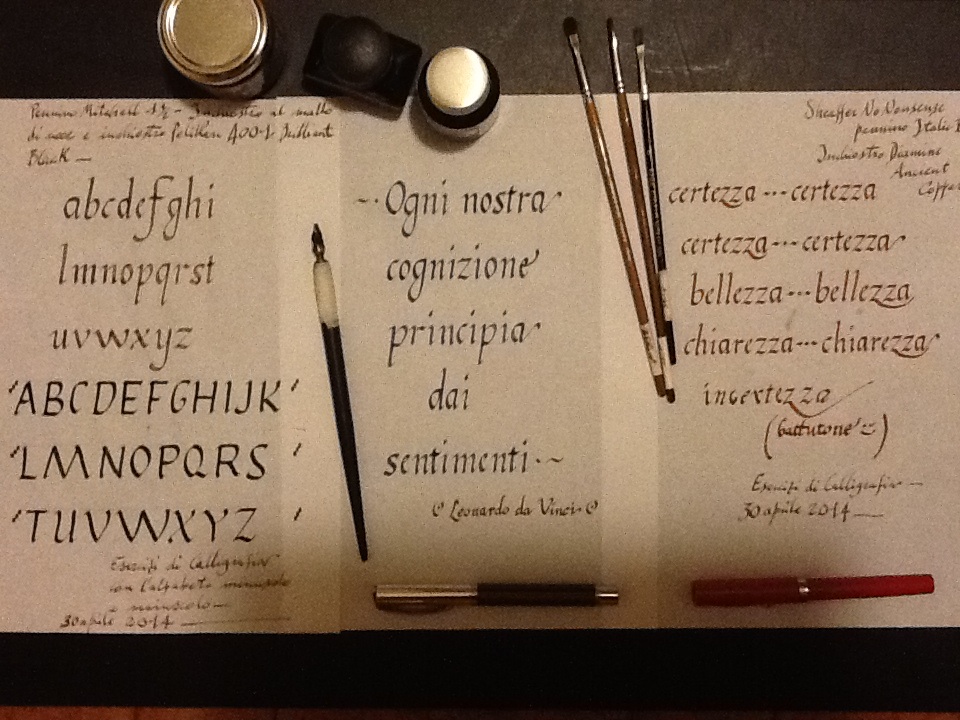 Pennino Mitchell 4½ - Inchiostro al mallo
di noce e inchiostro Pelikan 4001 Brilliant
Black
abcdefghi
lmnopqrst
uvwxyz
'ABCDEFGHIJK'
'LMNOPQRS'
'TUVWXYZ'
Esercizi di Calligrafia
con l'alfabeto minuscolo
e maiuscolo
30 aprile 2014
~·Ogni nostra
cognizione
principia
dai
sentimenti·~
Leonardo da Vinci
Sheaffer No Nonsense
pennino Italic
Inchiostro Diamine
Ancient
Copper
certezza---certezza
certezza---certezza
bellezza---bellezza
chiarezza---chiarezza
incertezza
(battutone)
Esercizi di Calligrafia
30 aprile 2014